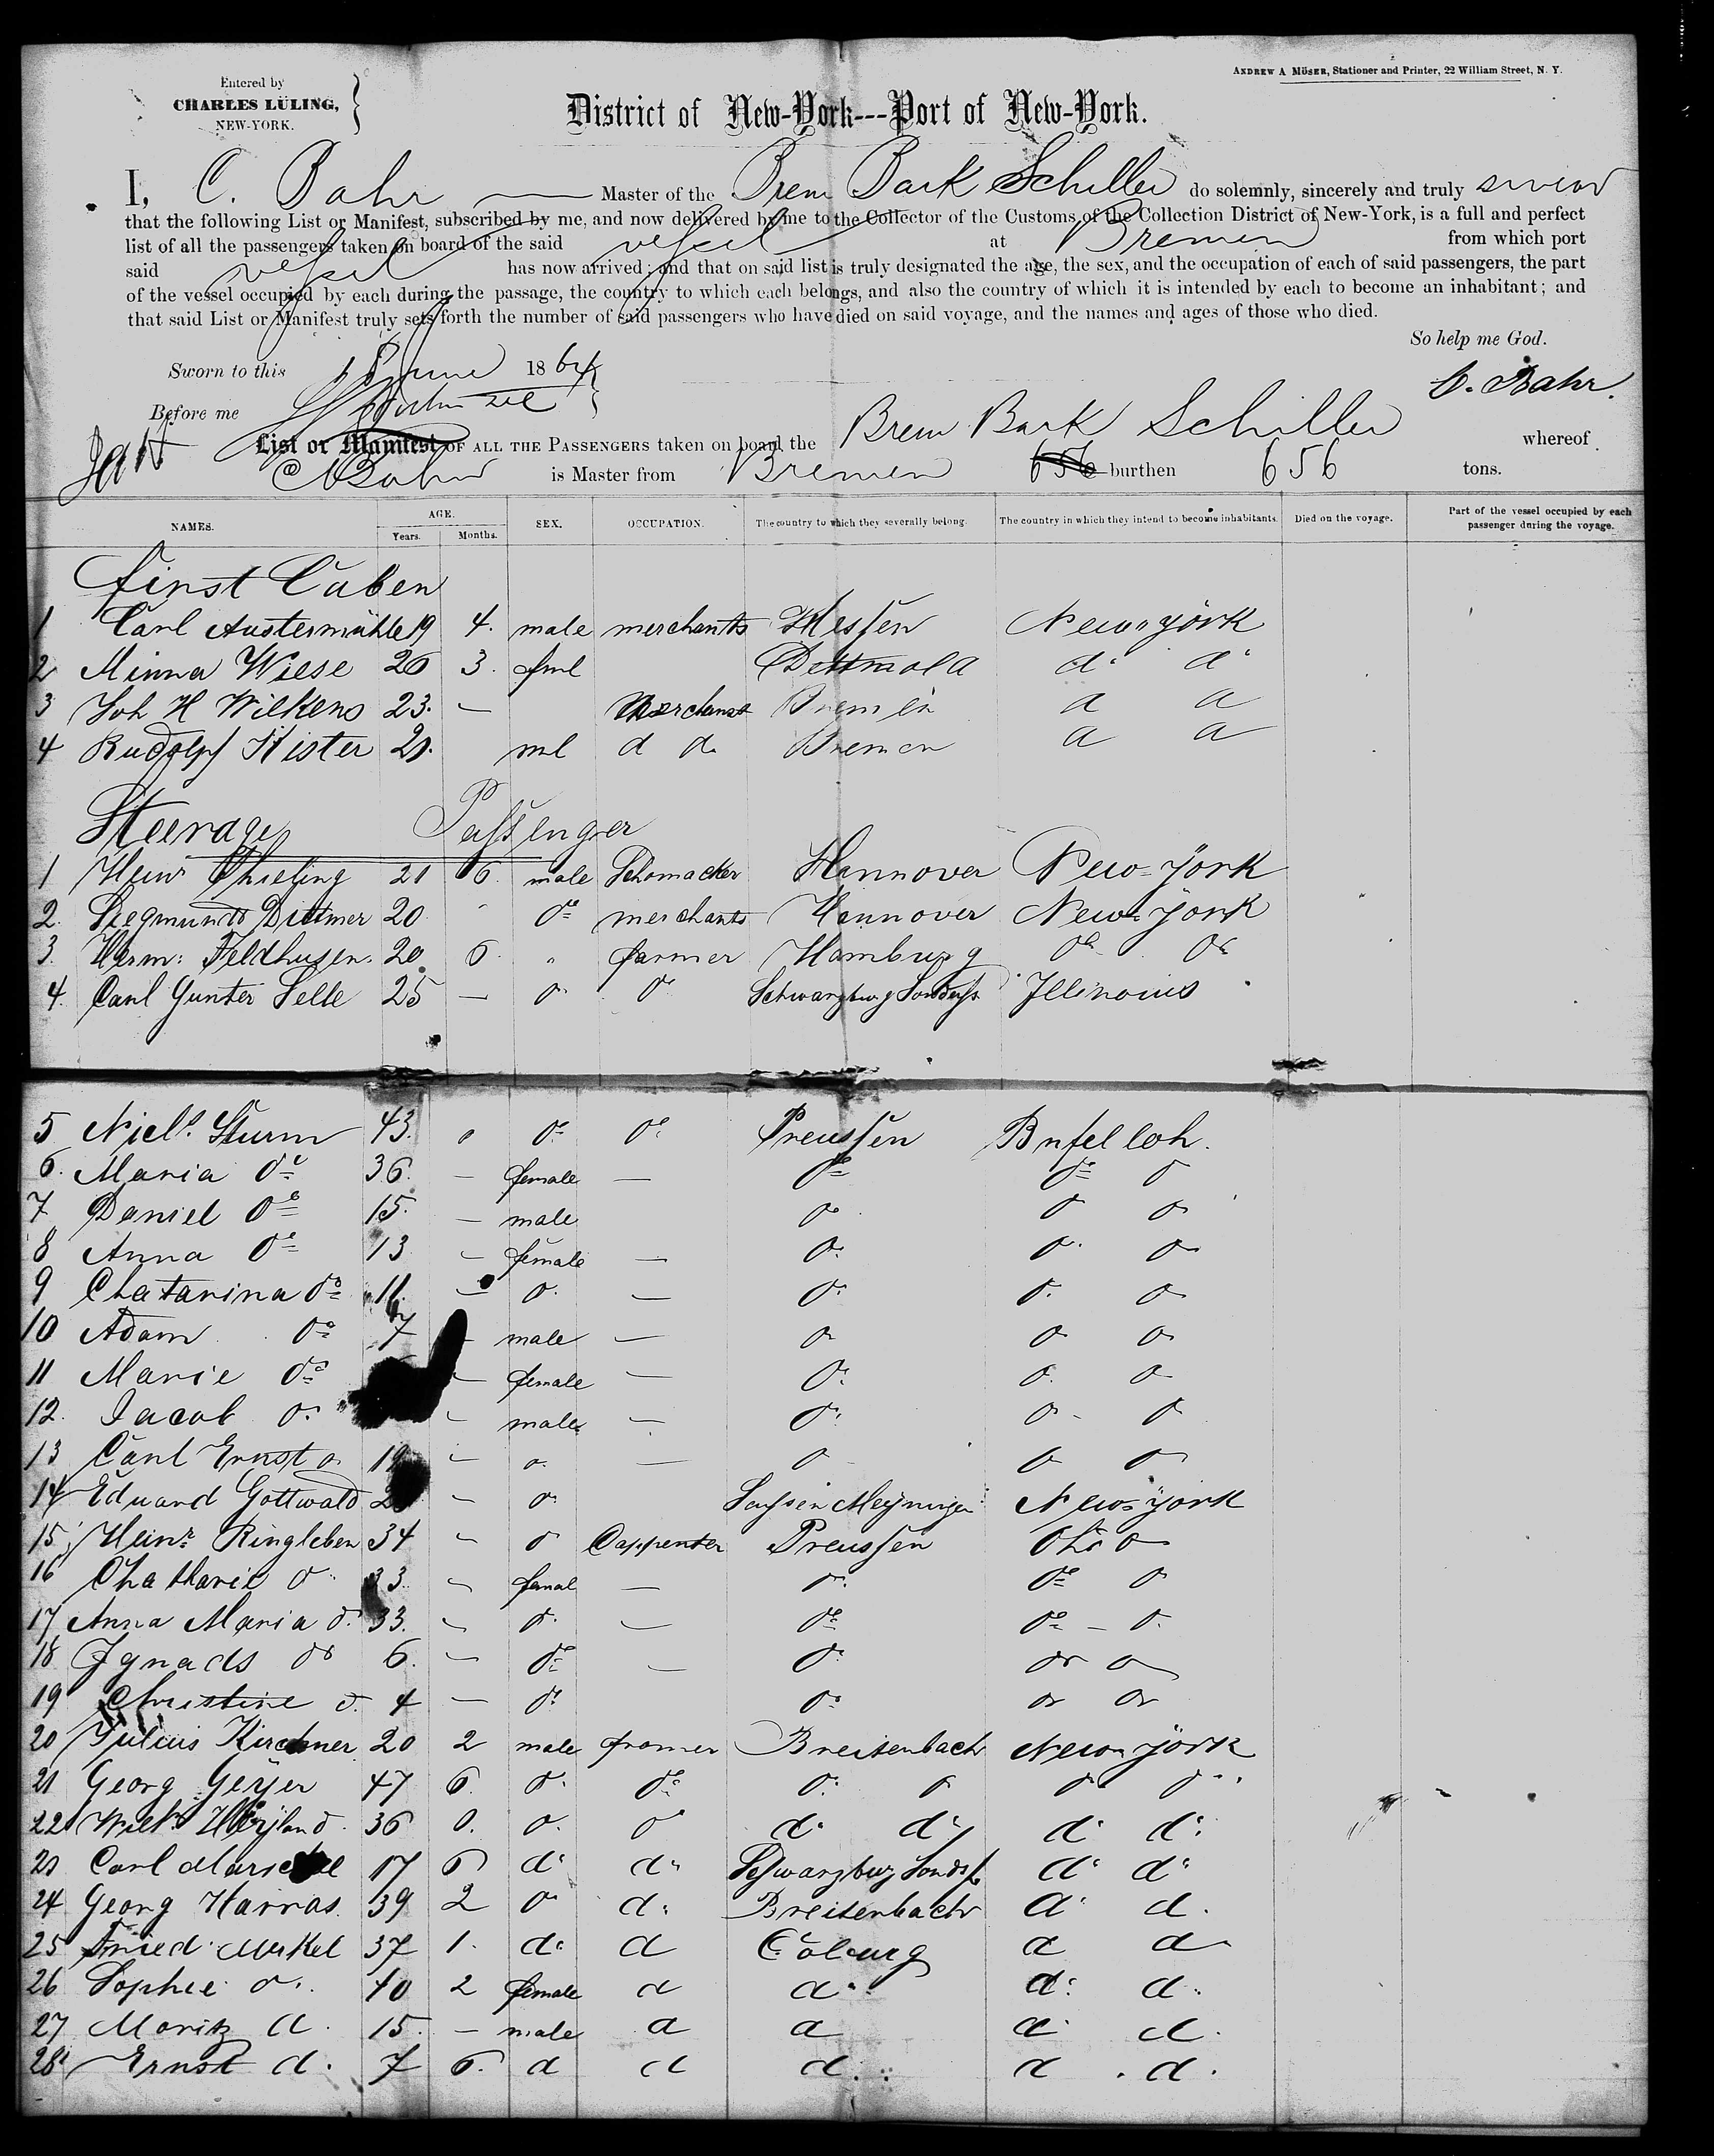 ANDREW A MÖSER, Stationer and Printer, 22 William Street, N. Y.
Entered by
CHARLES LÜLING,
NEW-YORK.
District of New-York---Port of New-York.
I, C. Bahr Master of the Brem Bark Schiller do solemnly, sincerely and truly swear
that the following List or Manifest, subscribed by me, and now delivered by me to the Collector of the Customs of the Collection District of New-York, is a full and perfect
list of all the passengers taken on board of the said vessel at Bremen from which port
said vessel has now arrived; and that on said list is truly designated the age, the sex, and the occupation of each of said passengers, the part
of the vessel occupied by each during the passage, the country to which each belongs, and also the country of which it is intended by each to become an inhabitant; and
that said List or Manifest truly sets forth the number of said passengers who have died on said voyage, and the names and ages of those who died.
So help me God.
Sworn to this 18 June 1864
C. Bahr.
Before me
List or Manifest OF ALL THE PASSENGERS taken on board the Brem Bark Schiller whereof
C Bahr is Master from Bremen 656 burthen 656 tons.
NAMES. AGE. Years. Months. SEX. OCCUPATION. The country to which they severally belong. The country in which they intend to become inhabitants. Died on the voyage. Part of the vessel occupied by each passenger during the voyage.
First Caben
1 Carl Austermühle 19 4. male merchants Hessen New-york
2 Minna Wiese 26 3. fml Dettmold d° d°
3 Joh H Wilkens 23. — Merchant Bremen d d
4 Rudolph Kister 21. ml d d. Bremen d d
Steerage Passenger
1 Heinr Thieling 21 6. male Schomacker Hannover New-York
2. Siegmund Dittmer 20 do merchants Hannover New-York
3. Herm: Feldhusen. 20 6. " farmer Hamburg do do
4. Carl Gunter Selle 25 — o o Schwarzburg Sondersh Jllinouis
5 Nicls. Sturm 43. do do Preussen Bufelloh.
6. Maria do 36. — female — do do o
7 Daniel do 15. — male o o o
8 Anna do 13 — female — o o o
9 Chatarina do 11. — o. — o o o
10 Adam do 7 male — o o o
11 Marie do — female — o o o
12. Jacob o. — male — o o o
13 Carl Ernst o — o. — o o o
14 Eduard Gottwald — o. Sachsen Meyningen New-york
15 Heinr. Ringleben 34 — o Cappenter Preussen Ohio
16 Chatharie o 33. — femal — o. do o
17 Anna Maria o. 33. — o. — do do — o.
18 Jgnads do 6. — do — o. do o
19 Christine o. 4 — o. o. do do
20 Julius Kirchner 20 2 male fromer Breitenbach New-york
21 Georg Geyer 47 6. o. do o. o o o
22 Wilh. Heyland 36 0. o. o d. d. d. d.
23 Carl 17 6 d. d. Schwarzburg Sondsh d. d.
24 Georg Harras. 39 2 o d. Breitenbach d. d.
25 Fried. Merkel 37 1. d. d Coburg d d
26 Sophie o. 40 2 female d d. d. d.
27 Moritz d. 15. — male d d d. d.
28 Ernst d. 7 6. d d d. d. d.